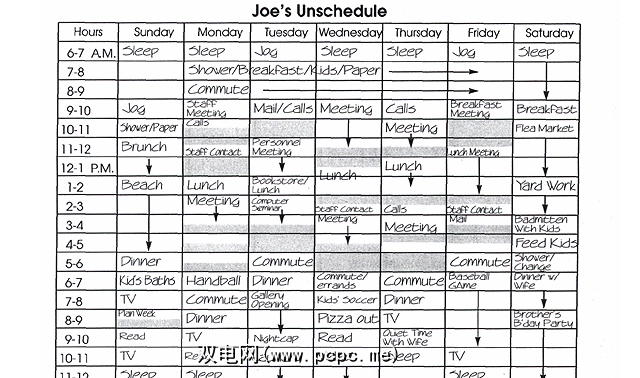 Joe's Unschedule
Hours Sunday Monday Tuesday Wednesday Thursday Friday Saturday
6-7 A.M. Sleep Sleep Jog Sleep Sleep Jog Sleep
7-8 Shower/Breakfast/Kids/Paper
8-9 Commute
9-10 Jog Staff Meeting Mail/Calls Meeting Calls Breakfast Meeting Breakfast
10-11 Shower/Paper Calls Meeting Flea Market
11-12 Brunch Staff Contact Personnel Meeting Lunch Meeting
12-1 P.M. Lunch Lunch
1-2 Beach Lunch Bookstore/Lunch Yard Work
2-3 Meeting Computer Seminar Staff Contact Calls Staff Contact
3-4 Meeting Meeting Mail Badmitten With Kids
4-5 Feed Kids
5-6 Dinner Commute Commute Shower/Change
6-7 Kid's Baths Handball Dinner Commute/errands Commute Baseball GAme Dinner w/ Wife
7-8 TV Commute Gallery Opening Kids' Soccer Dinner
8-9 Plan Week Dinner Pizza out TV Brother's B'day Party
9-10 Read TV Nightcap Read Quiet Time With Wife
10-11 TV Sleep TV
双电网(www.pcpc.me)
11-12 Sleep Sleep Sleep